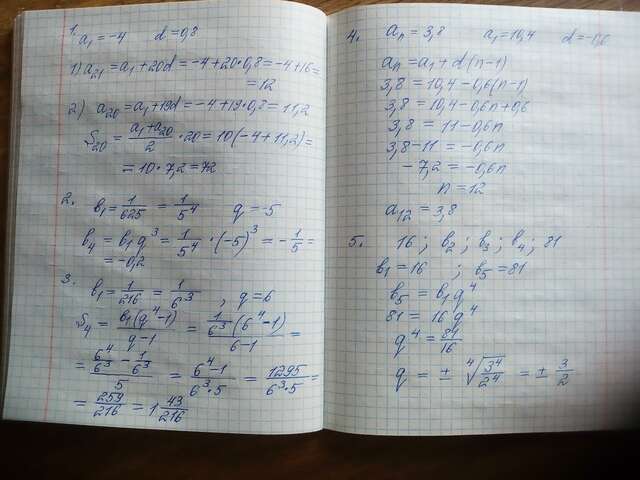 1. a₁ = -4   d = 0,8
1) a₂₁ = a₁ + 20d = -4 + 20·0,8 = -4 + 16 =
= 12
2) a₂₀ = a₁ + 19d = -4 + 19·0,8 = 11,2
S₂₀ = (a₁ + a₂₀)/2 · 20 = 10(-4 + 11,2) =
= 10 · 7,2 = 72
2. b₁ = 1/625 = 1/5⁴   q = -5
b₄ = b₁q³ = 1/5⁴ · (-5)³ = -1/5 =
= -0,2
3. b₁ = 1/216 = 1/6³ , q = 6
S₄ = b₁(q⁴-1)/(q-1) = 1/6³(6⁴-1)/(6-1) =
= (6⁴/6³ - 1/6³)/5 = (6⁴-1)/(6³·5) = 1295/(6³·5) =
= 259/216 = 1 43/216
4. aₙ = 3,8   a₁ = 10,4   d = -0,6
aₙ = a₁ + d(n-1)
3,8 = 10,4 - 0,6(n-1)
3,8 = 10,4 - 0,6n + 0,6
3,8 = 11 - 0,6n
3,8 - 11 = -0,6n
-7,2 = -0,6n
n = 12
a₁₂ = 3,8
5. 16 ; b₂ ; b₃ ; b₄ ; 81
b₁ = 16 ; b₅ = 81
b₅ = b₁q⁴
81 = 16q⁴
q⁴ = 81/16
q = ± ⁴√(3⁴/2⁴) = ± 3/2